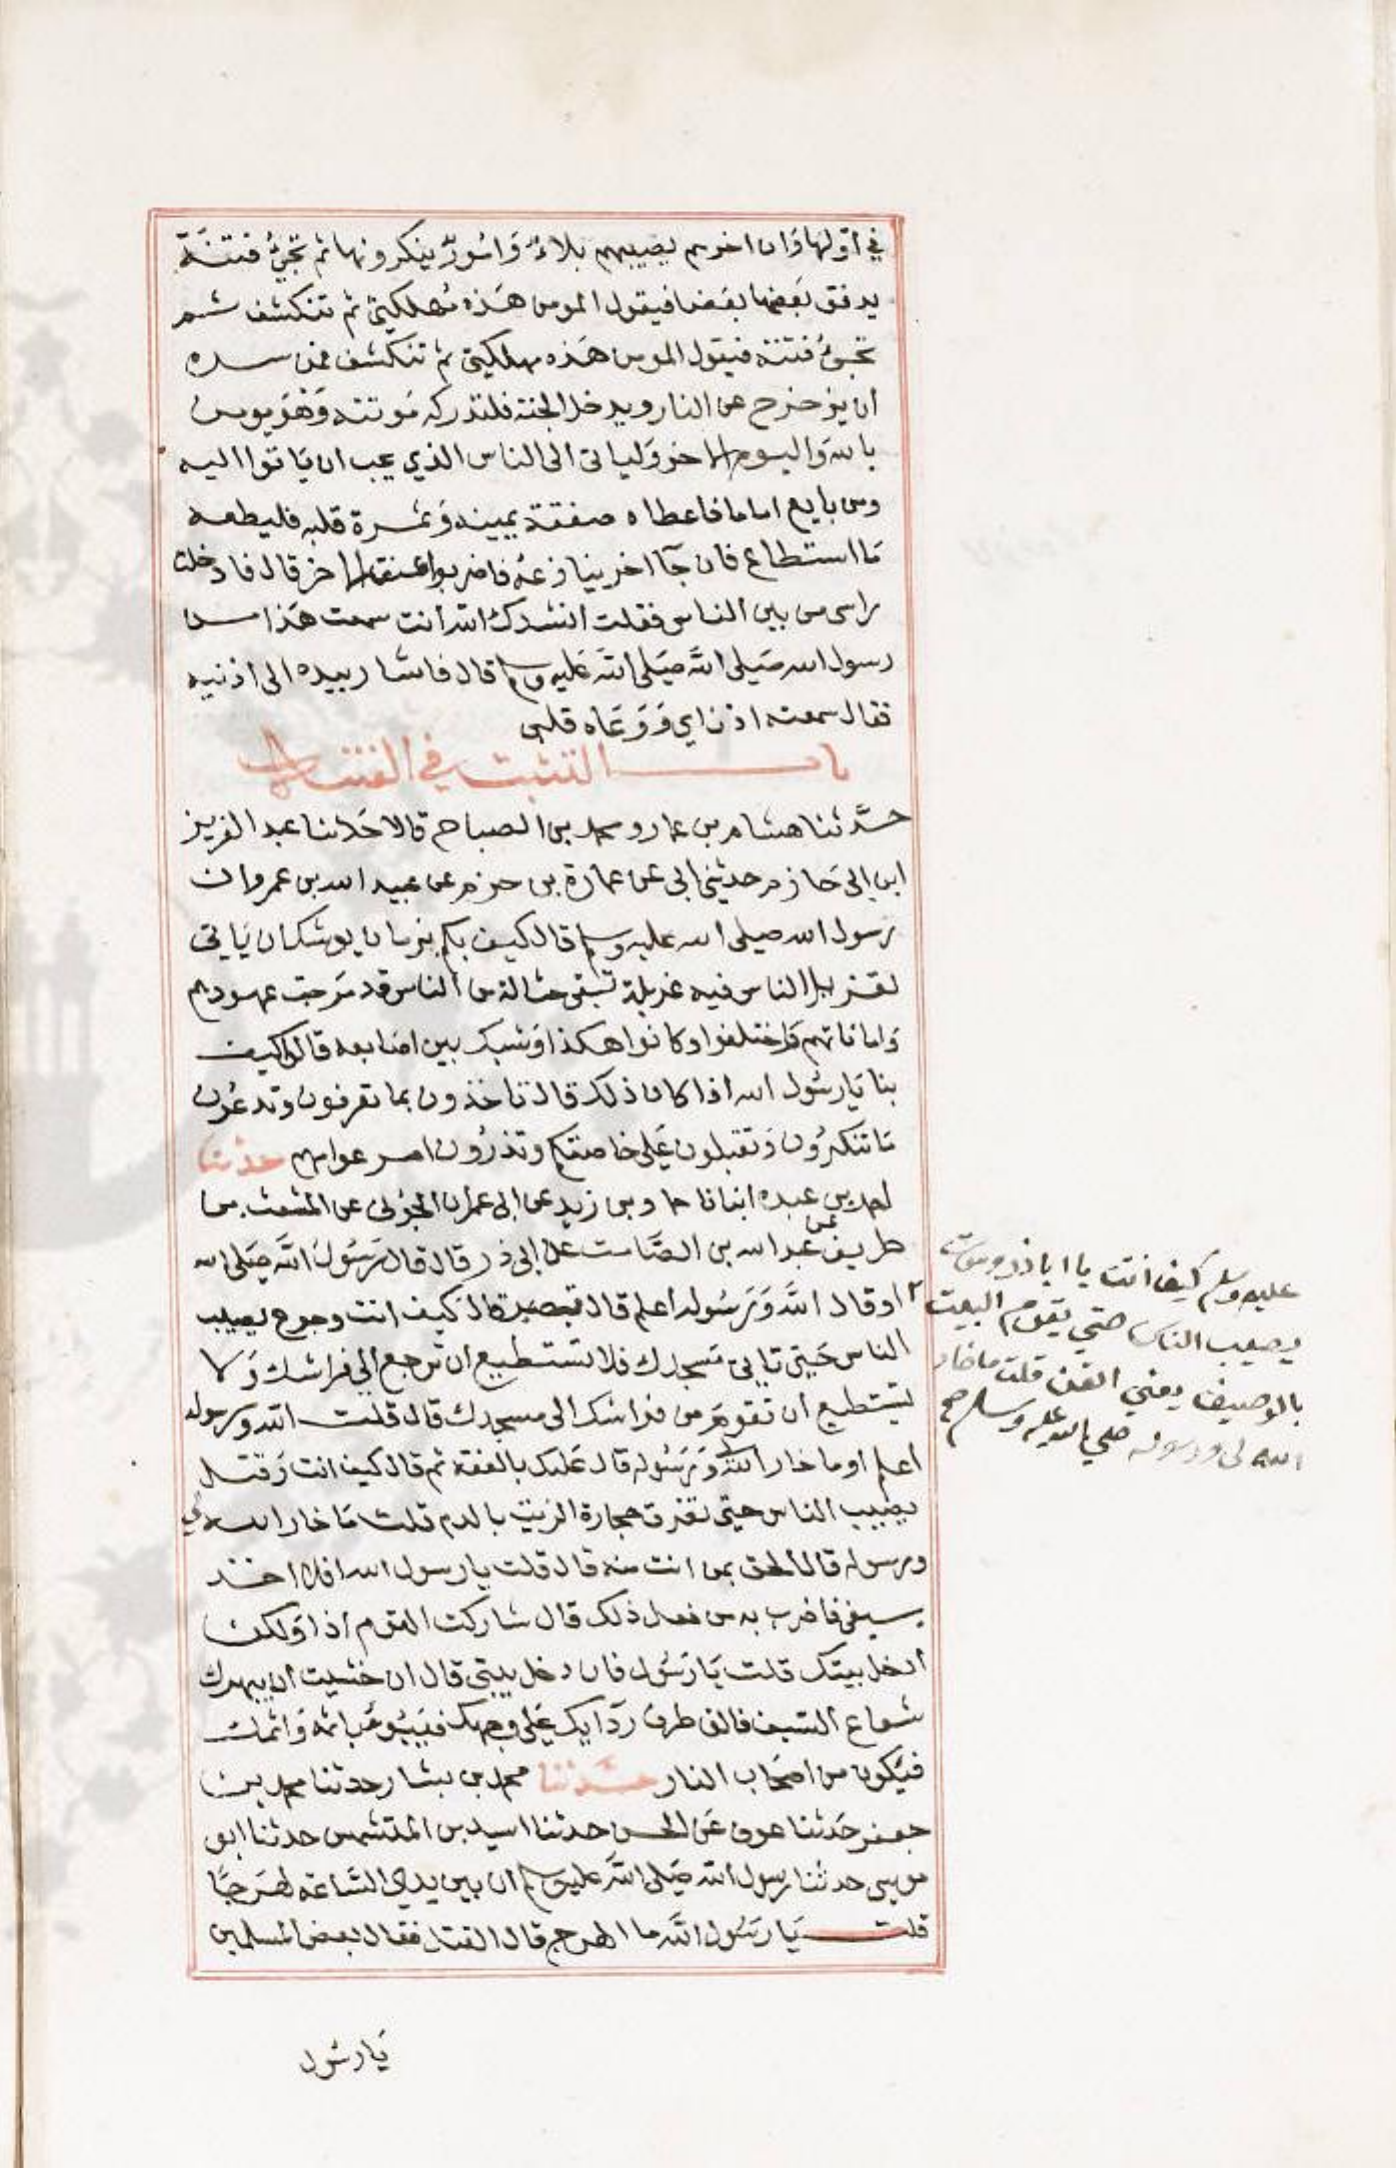 في اولها وان اخرهم يصيبهم بلاء وَامُورٌ ينكرونها ثم تجيُ فتنة
يدفق بَعضها بعَضا فيقول المومن هَذه مُهلكتي ثم تنكشف شم
تجيُ فتنة فيقول المومن هَذه مهلكتي ثم تنكشف فمن سره
ان يزحزح عن النار ويدخل الجنة فلتدركه مَوتته وَهُوَ يومن
بالله وَاليوم الاخر وَلياتى الى الناس الذي يحب ان يَاتوا اليه
ومن بايع اماما فاعطاه صفقة يمينه وَثمرة قلبه فليطعه
مَا استطاع فان جَآ اخر ينازعُه فاضربوا عنق الاخر قال فادخلت
راسى من بين الناس فقلت انشدك الله أنت سمعت هَذا من
رسول الله صَلى اللَّه صَلى اللَّه عَليه وسلم قال فاشار بيده الى اذنيه
فقال سمعته اذناي وَوَعَاه قلبى
باب التثبت في الفتنة
حدَّثنا هشام بن عمار ومحمد بن الصباح قالا حَدثنا عبد العزيز
ابن ابى حَازم حدثنى ابى عَن عمارة بن حزم عن عبيد الله بن عمر وان
رسول الله صلى الله عليه وسلم قال كيف بكم بزمان يوشك ان يَاتى
يغربل الناس فيه غربلة تبقى حثالة من الناس قد مَرجت عهودهم
وَاماناتهم فَاختلفوا وكانوا هكذا وَشبك بين اصَابعه قالوا كيف
بنا يَارسُول الله اذا كان ذلك قال تاخذون بما تعرفون وتدعُون
مَا تنكرُون وَتقبلون عَلى خاصتكم وتذرُون امر عوامهم حدثنا
احمد بن عبده انبانا حماد بن زيد عن ابى عمران الجَوْنى عن المشعث بن
طريف عن عبد الله بن الصَّامت عن ابى ذر قال قال رَسُولُ اللَّه صَلى الله
عليه وسلم كيف انت يا اباذر وموت
يصيب الناس حتي يقوم البيت
بالوصيف يعني القبر قلت ماخار
الله لى ورسوله صلي الله عليه وسلم صح
او قال اللَّه وَرَسُوله اعلم قال تصبر قال كيف انت وجوع يصيب
الناس حَتى تاتي مَسجدك فلا تستطيع ان ترجع الي فراشك وَلا
تستطيع ان تقومَ من فراشك الى مسجدك قال قلت الله ورسوله
اعلم او ما خار الله لى وَرَسُوله قال عَليك بالعفة ثم قال كيف انت وَقتل
يصيب الناس حتى تغرق حجارة الزيت بالدم قلت مَا خار الله لي
ورسوله قال الحق بمن انت منه قال قلت يا رسول الله افلا اخذ
بسيفى فاضرب به من فعل ذلك قال شاركت القوم اذا وَلكن
ادخل بيتك قلت يَارَسُول فان دخل بيتى قال ان خشيت ان يبهرك
شعاع السَيف فالق طرف ردَآيك عَلى وجهك فيَبُوءُ باثمه وَاثمك
فيَكون من اصحَاب النار حدَّثنا محمد بن بشار حدثنا محمد بن
جعفر حَدثنا عوف عَن الحسن حدثنا اسيد بن المتشمس حدثنا ابو
موسى حدثنا رسول الله صَلى اللَّه عليه وسلم ان بين يدي السَّاعَة لهَرجًا
قلت يَا رَسُول اللَّه ما الهرج قال القتل فقال بعض المسلمين
يَارسُول